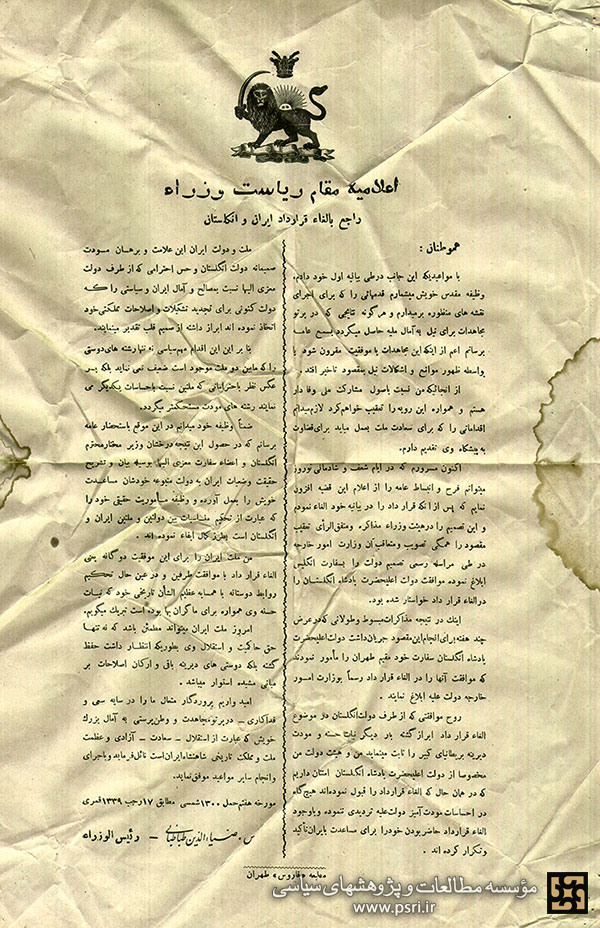 اعلامیه مقام ریاست وزراء
راجع بالغاء قرارداد ایران و انگلستان
هموطنان:
با مواعدیکه این جانب درطی بیانیه اول خود دادم،
وظیفه مقدس خویش میشمارم قدمهائی را که برای اجرای
نقشه های منظوره برمیدارم و هرگونه نتایجی که در پرتو
مجاهدات برای نیل به آمال ملیه حاصل میگردد بسمع عامه
برسانم اعم از اینکه این مجاهدات با موفقیت مقرون شود یا
بواسطه ظهور موانع و اشکالات نیل بمقصود تاخیر افتد.
از آنجائیکه من نسبت باصول مشارکت ملی وفا دار
هستم و همواره این رویه را تعقیب خواهم کرد لازم میدانم
اقداماتی را که برای سعادت ملت بعمل میاید برای قضاوت
به پیشگاه وی تقدیم دارم.
اکنون مسرورم که در ایام شعف و شادمانی نوروز
میتوانم فرح و انبساط عامه را از اعلام این قضیه افزون
نمایم که پس از آنکه قرار داد را در بیانیه خود الغاء نمودم
و این تصمیم را در هیئت وزراء مذاکره و متفق الرأی تعقیب
مقصود را همگی تصویب و متعاقب آن وزارت امور خارجه
در طی مراسله رسمی تصمیم دولت را بسفارت انگلیس
ابلاغ نموده موافقت دولت اعلیحضرت پادشاه انگلستان را
در الغاء قرار داد خواستار شده بود.
اینك در نتیجه مذاکرات مبسوط و طولانی که در عرض
چند هفته برای انجام این مقصود جریان داشت دولت اعلیحضرت
پادشاه انگلستان سفارت خود مقیم طهران را مأمور نمودند
که موافقت آنها را در الغاء قرار داد رسماً بوزارت امور
خارجه دولت علیه ابلاغ نمایند.
روح موافقتی که از طرف دولت انگلستان در موضوع
الغاء قرار داد ابراز گشته بار دیگر نیات حسنه و مودت
دیرینه بریطانیای کبیر را ثابت مینماید من و هیئت دولت من
مخصوصا از دولت اعلیحضرت پادشاه انگلستان امتنان داریم
که در همان حال که الغاء قرارداد را قبول نموده‌اند هیچگاه
در احساسات مودت آمیز دولت علیه تردیدی ننموده و با وجود
الغاء قرارداد حاضر بودن خود را برای مساعدت بایران تأکید
و تکرار کرده اند.
ملت و دولت ایران این علامت و برهان مودت
صمیمانه دولت انگلستان و حس احترامی که از طرف دولت
معزی الیها نسبت بمصالح و آمال ایران و سیاستی را که
دولت کنونی برای تجدید تشکیلات و اصلاحات مملکتی خود
اتخاذ نموده اند ابراز داشته از صمیم قلب تقدیر مینمایند.
بنا بر این این اقدام مهم سیاسی نه تنها رشته های دوستی
را که مابین دو ملت موجود است ضعیف نمی نماید بلکه بر
عکس نظر باحتراماتی که ملتین نسبت باحساسات یکدیگر می
نمایند رشته های مودت مستحکمتر میگردد.
ضمناً وظیفه خود میدانم در این موقع باستحضار عامه
برسانم که در حصول این نتیجه درخشان وزیر مختار محترم
انگلستان و اعضاء سفارت معزی الیها بوسیله بیان و تشریح
حقیقت وضعیات ایران به دولت متبوعه خودشان مساعدت
خویش را بعمل آورده و وظیفه مأموریت حقیقی خود را
که عبارت از تحکیم مناسبات بین دولتین و ملتین ایران و
انگلستان است بطرز کامل ایفاء نموده اند.
من ملت ایران را برای این موفقیت دوگانه یعنی
الغاء قرار داد با موافقت طرفین و در عین حال تحکیم
روابط دوستانه با همسایه عظیم الشأن تاریخی خود که نیات
حسنه وی همواره برای ما گران بها بوده است تبریك میگویم.
امروز ملت ایران میتواند مطمئن باشد که نه تنها
حق حاکمیت و استقلال وی بطوریکه انتظار داشت حفظ
گشته بلکه دوستی های دیرینه باقی و ارکان اصلاحات بر
مبانی مشیده استوار میباشد.
امید واریم پروردگار متعال ما را در سایه سعی و
فداکاری – در پرتو مجاهدت و وطن پرستی به آمال بزرك
خویش که عبارت از استقلال – سعادت – آزادی و عظمت
ملت و مملکت تاریخی شاهنشاه ایران است نائل فرماید و باجرای
و انجام سایر مواعید موفق نماید.
مورخه هفتم حمل ۱۳۰۰ شمسی مطابق ۱۷ رجب ۱۳۳۹ قمری
س. ضیاءالدین طباطبائی – رئیس الوزراء
مطبعه «فاروس» طهران
مؤسسه مطالعات و پژوهشهای سیاسی
www.psri.ir